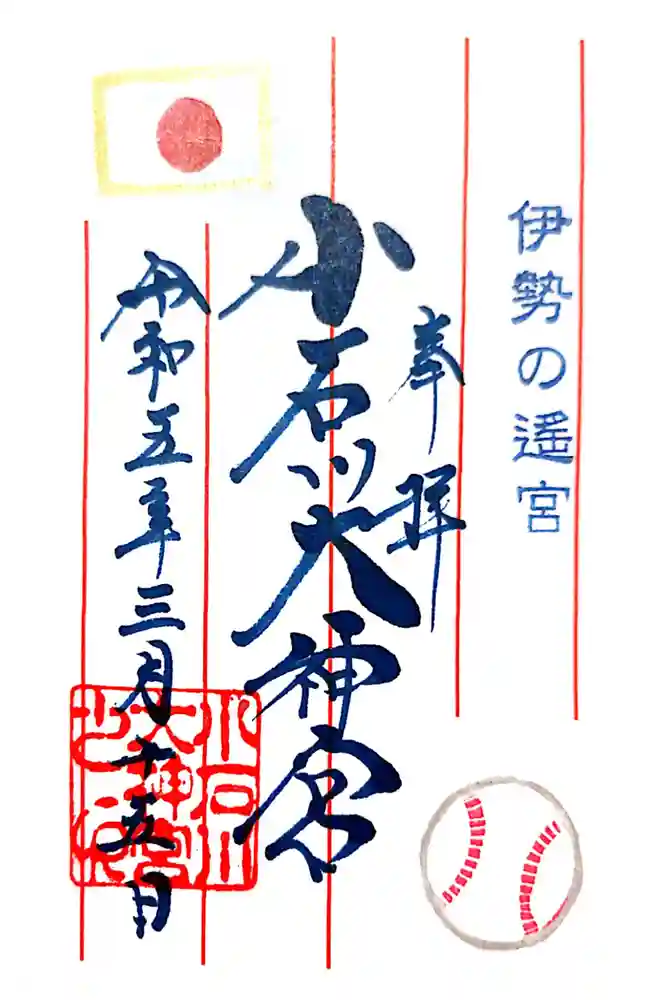 伊勢の遥宮
奉拝
小石川大神宮
令和五年三月十五日
小石川
大神宮
之印